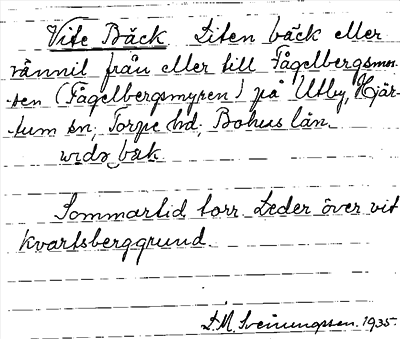 Vite Bäck Liten bäck eller
rännil från eller till Fågelbergsmos-
sen (Fågelbergsmyren) på Utby, Hjär-
tum sn; Torpe hd; Bohus län.
widə bæk
Sommartid torr. Leder över vit
kvartsberggrund.
L.M. Sveinungsson. 1935.